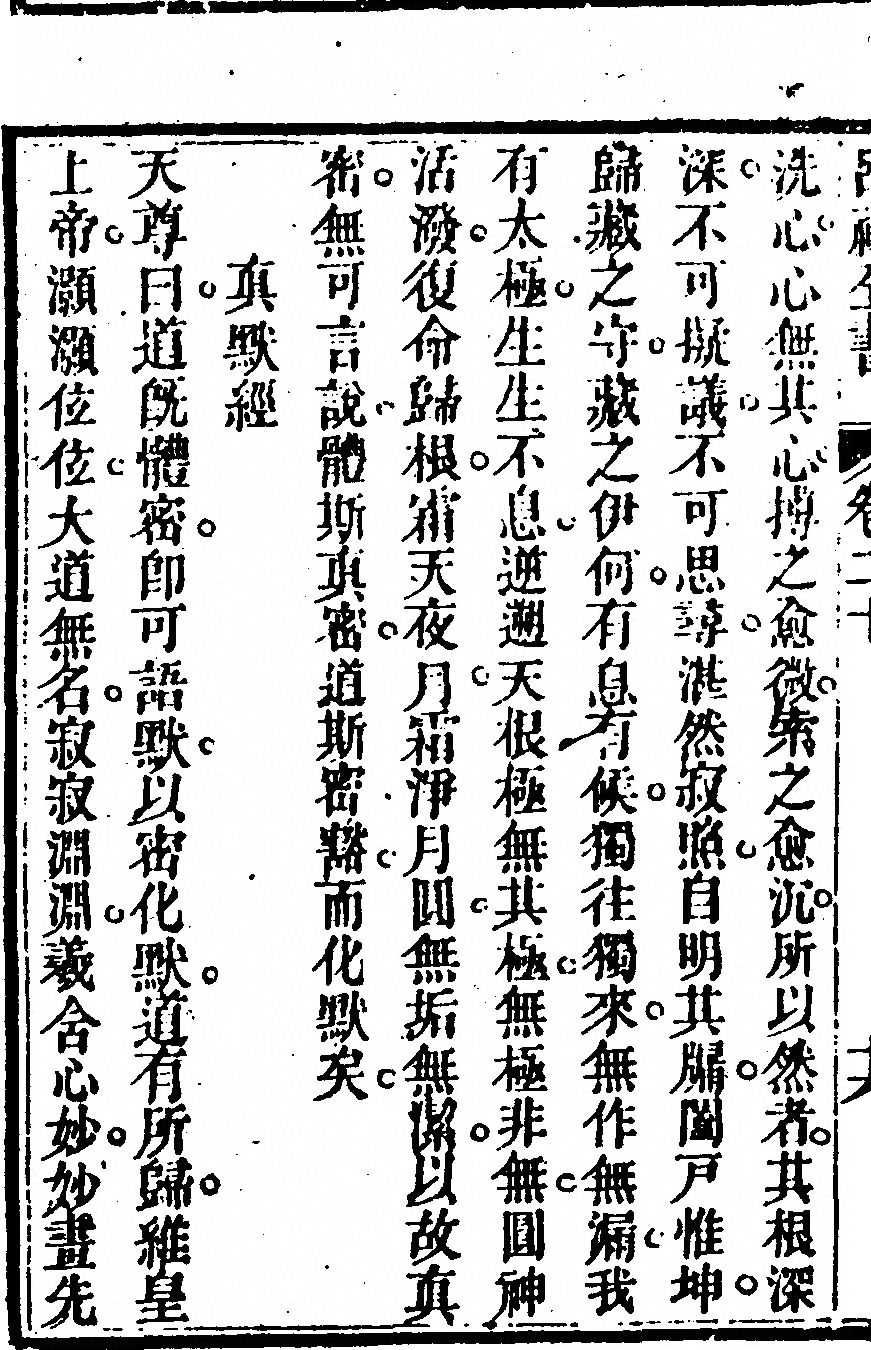 洗心。心無其心。搏之愈微。索之愈沉。所以然者。其根深
深。不可擬議。不可思尋。湛然寂照。自明其牖。闔戸惟坤。
歸藏之守。藏之伊何。有息有候。獨往獨來。無作無漏。我
有太極。生生不息。逆遡天根。極無其極。無極非無。圓神
活潑。復命歸根。霜天夜月。霜淨月圓。無垢無潔。以故真
密。無可言說。體斯真密。道斯密豁。而化默矣。
真默經
天尊曰。道旣體密。卽可語默。以密化默。道有所歸。維皇
上帝。灝灝位位。大道無名。寂寂淵淵。羲含心妙。妙畫先